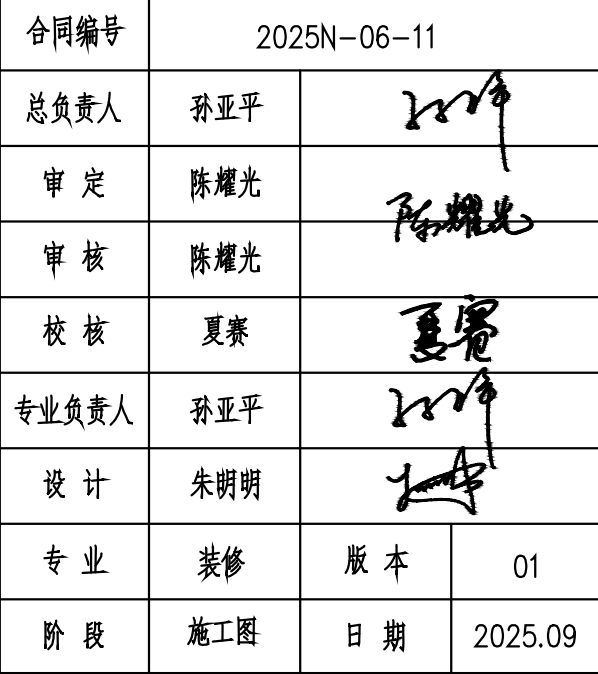 合同编号 2025N-06-11
总负责人 孙亚平
审 定 陈耀光
陈耀光
审 核 陈耀光
校 核 夏赛 夏赛
专业负责人 孙亚平
设 计 朱明明
专 业 装修 版 本 01
阶 段 施工图 日 期 2025.09